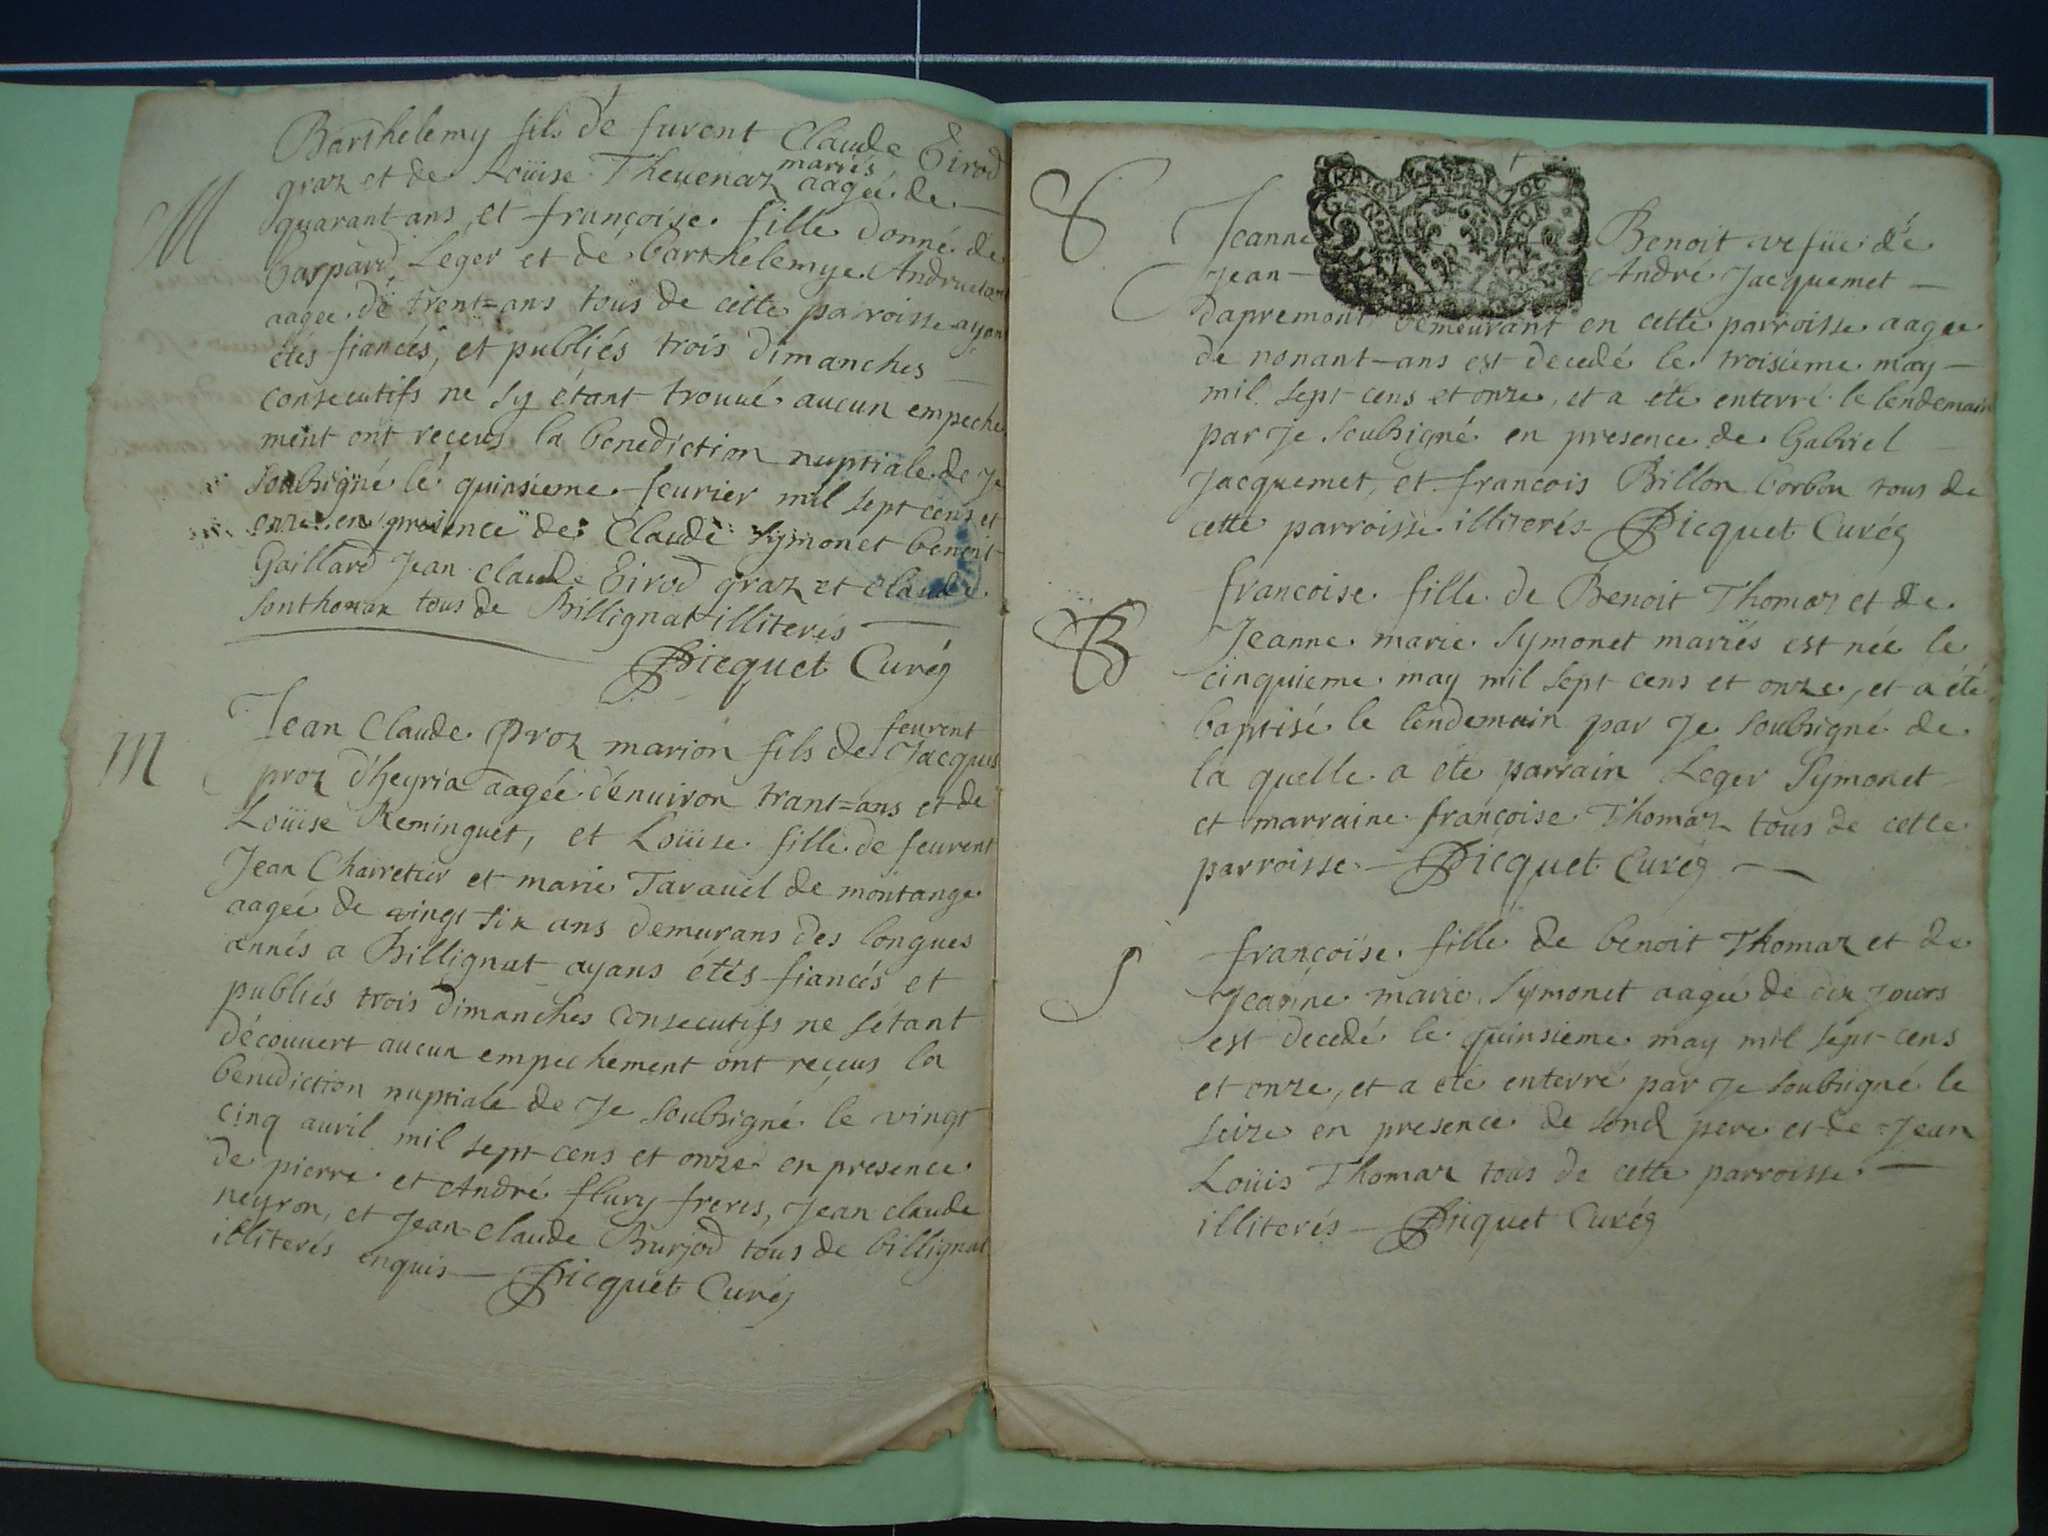 Barthelemy fils de furent Claude Tirod
graz et de Loüise Thevenaz mariés aagée de
M
quarant ans, et françoise fille donné de
Gaspard Leger et de barthelemye
aagée de trent=ans tous de cette paroisse ayans
étés fiancés, et publiés trois dimanches
consecutifs ne sy étant trouué aucun empeche
ment ont reçeus la benediction nuptiale de je
soubsigné le quinsieme feurier mil sept cens et
onze en presence de Claude Symonet benoit
Gaillard Jean claude Tirod graz et claude
Sonthonax tous de Billignat illiterés
Picquet Curé
M
Jean Claude Proz marion fils de feurent Jacques
proz d'heyria aagée d'enuiron trant=ans et de
Loüise Reminguet, et Loüise fille de feurent
Jean Chairetier et marie Tarauel de montange
aagée de vingt six ans demurans des longues
annés a Billignat ayans étés fiancés et
publiés trois dimanches consecutifs ne sétant
découuert aucun empechement ont reçeus la
benediction nuptiale de Je soubsigné le vingt
cinq auril mil sept cens et onze en presence
de pierre et André flury freres, Jean claude
neyron, et Jean claude Burjod tous de billignat
illiterés enquis Picquet Curé
S
Jeanne Benoit vefüe de
Jean André Jacquemet
dapremont demeurant en cette parroisse aagee
de nonant-ans est decedé le troisieme may
mil sept cens et onze, et a eté enterré le lendemain
par je soubsigné en presence de Gabriel
Jacquemet, et francois Billon borbon tous de
cette parroisse illiterés Picquet Curé
B
francoise fille de Benoit Thomaz et de
Jeanne marie Symonet mariés est née le
cinquieme may mil sept cens et onze, et a été
baptisé le lendemain par Je soubsigné de
la quelle a eté parrain Leger Symonet
et marraine françoise Thomaz tous de cette
parroisse Picquet Curé
S
françoise fille de benoit Thomaz et de
Jeanne marie Symonet aagée de dix jours
est decedé le quinsieme may mil sept cens
et onze, et a eté enterré par Je soubsigné le
seize en presence de sond pere et de Jean
Loüis Thomaz tous de cette parroisse
illiterés Picquet Curé